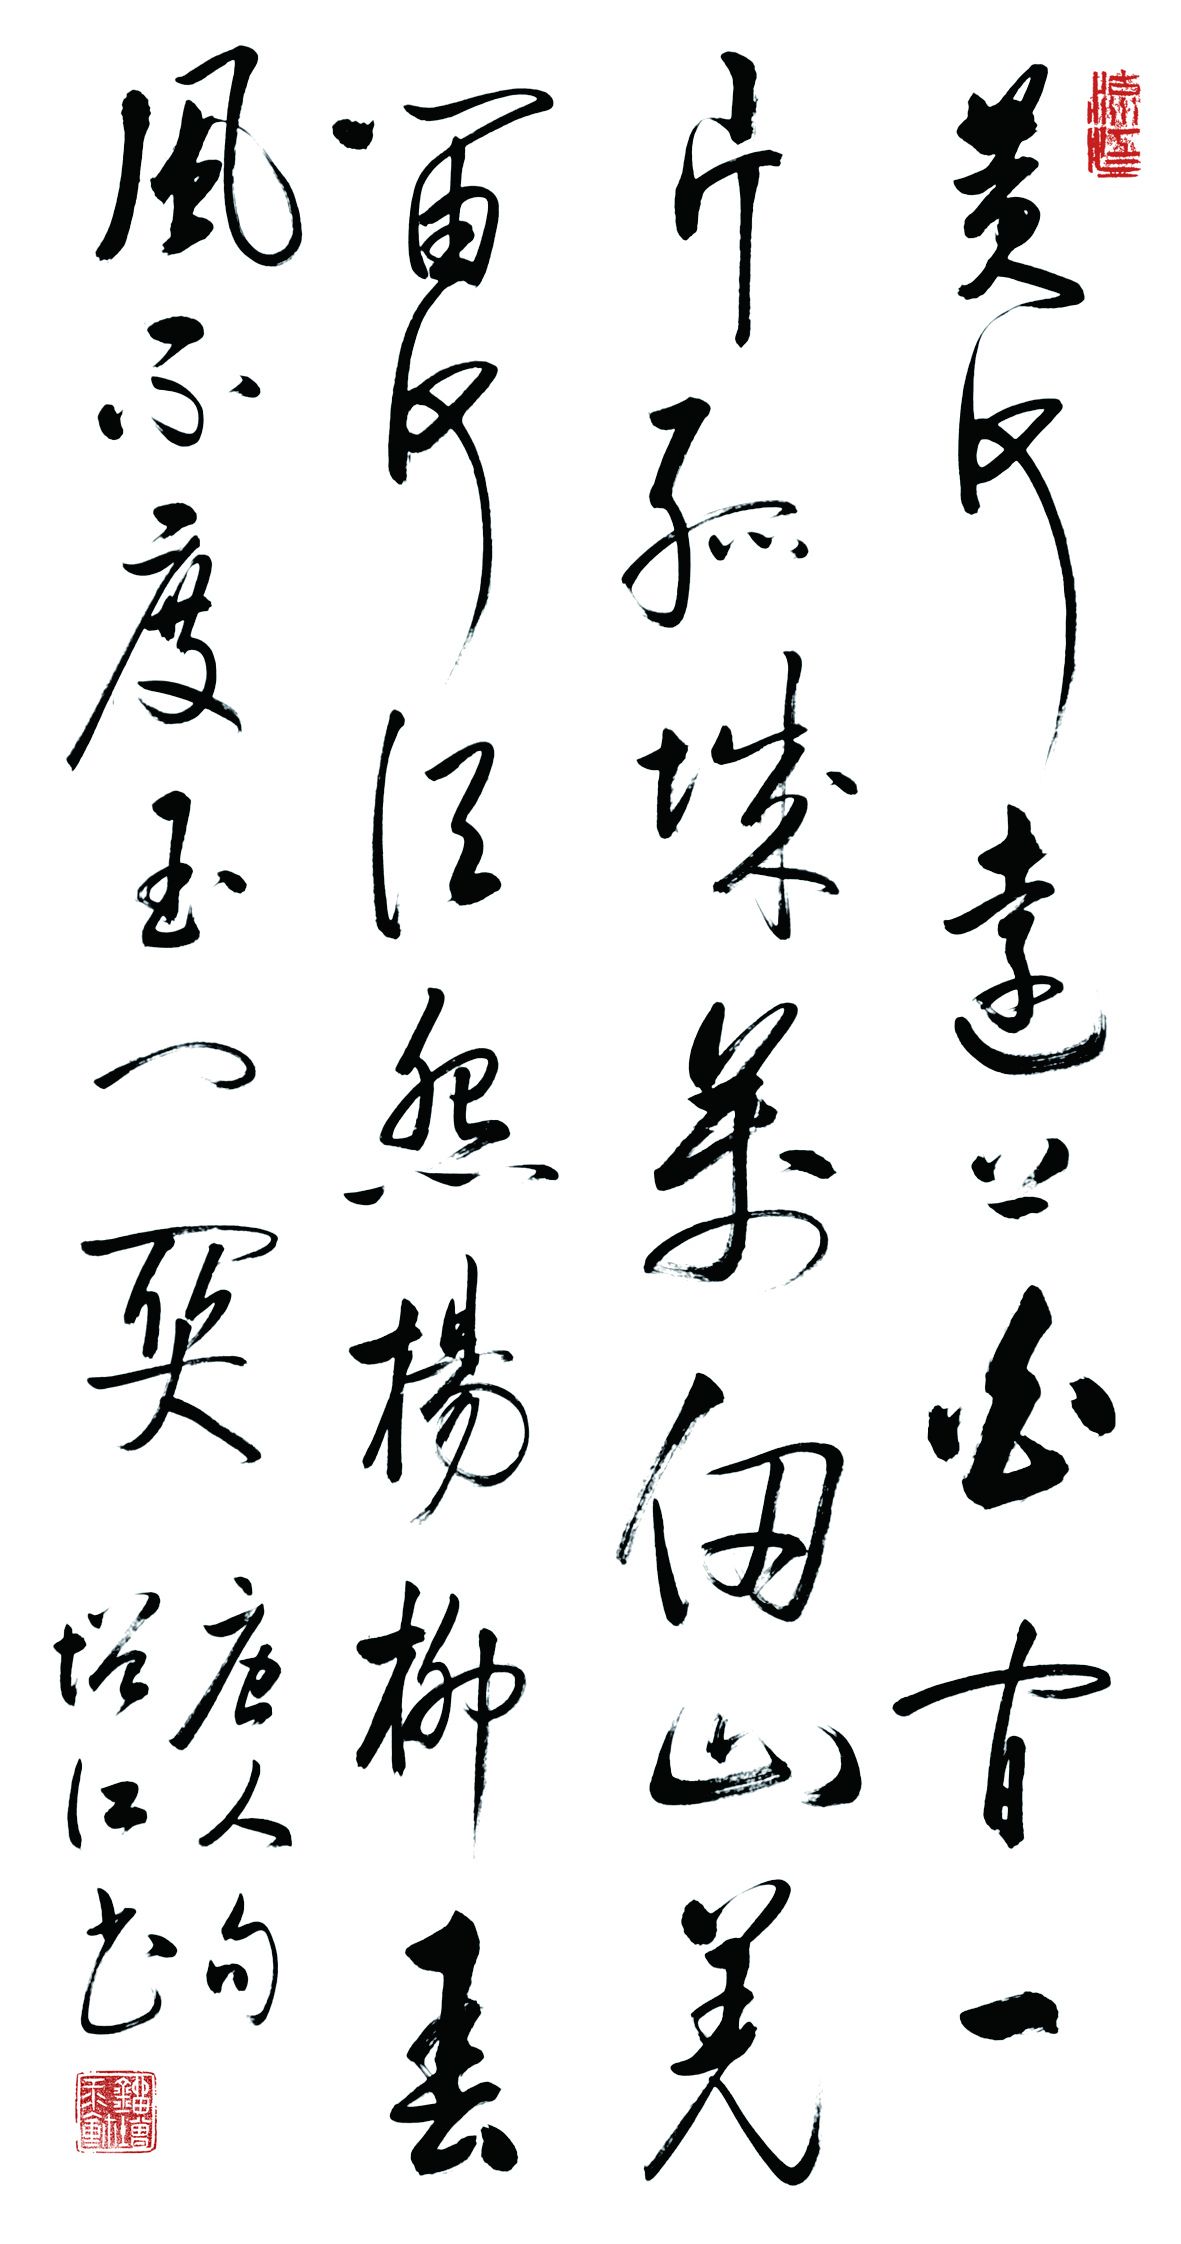 黄河遠上白間一
片孤城萬仞山羌
笛何須怨楊柳春
風不度玉門關
唐人句
塔江书